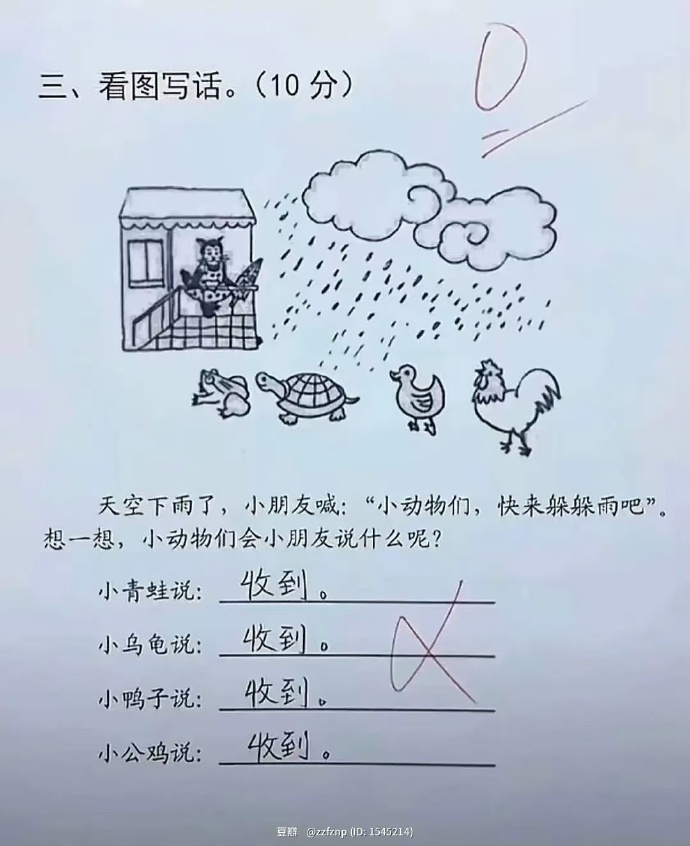 0
三、看图写话。（10 分）
天空下雨了，小朋友喊：“小动物们，快来躲躲雨吧”。
想一想，小动物们会小朋友说什么呢？
小青蛙说：收到。
小乌龟说：收到。
小鸭子说：收到。
小公鸡说：收到。
豆瓣 @zzfznp (ID: 1545214)